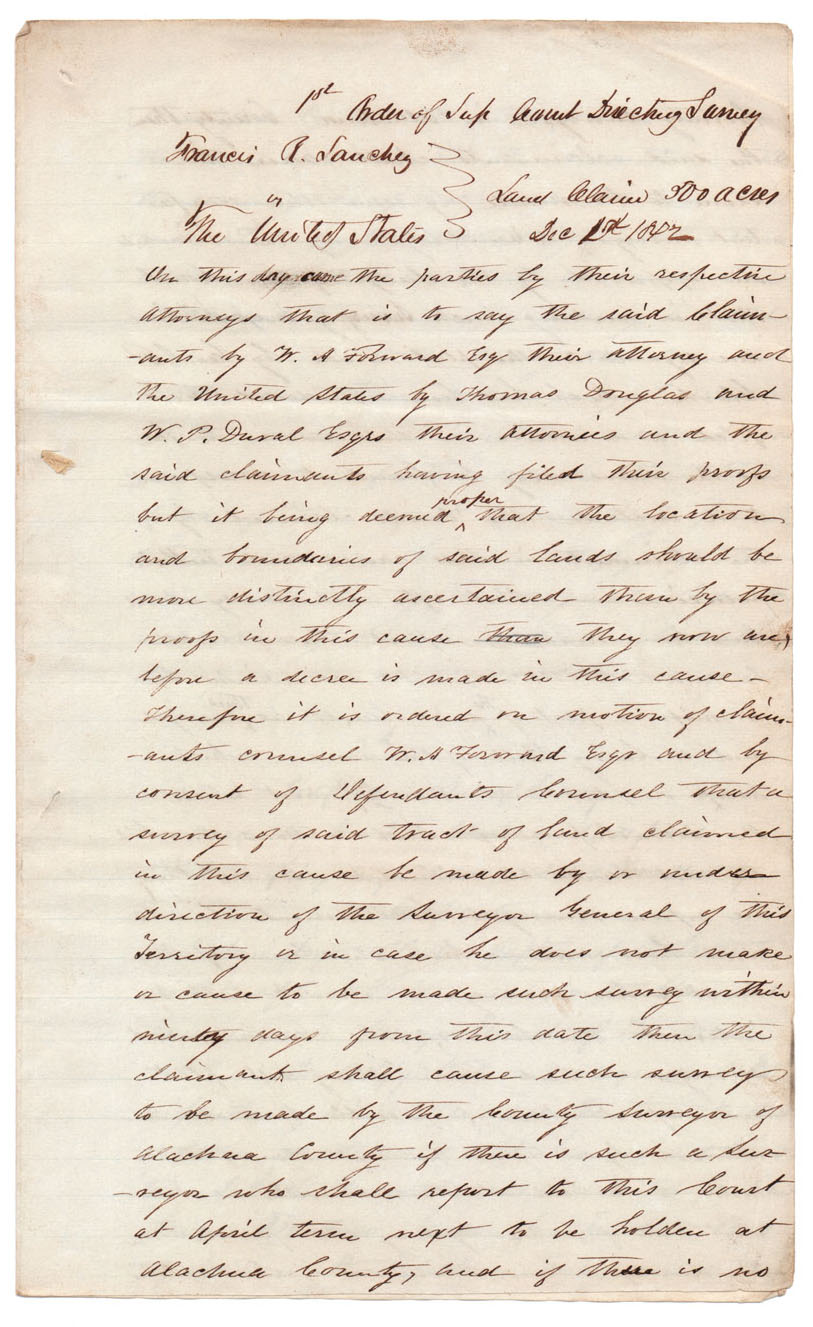 1st Order of Sup Court Directing Survey
Francis R. Sanchez
vs
Land Claim 300 acres
The United States
Dec 1842
On this day came the parties by their respective
Attorneys that is to say the said Claim-
-ants by W. A Forward Esq their attorney and
the United States by Thomas Douglas and
W. P. Duval Esqrs their Attornies and the
said claimants having filed their proofs
but it being deemed proper that the location
and boundaries of said lands should be
more distinctly ascertained than by the
proofs in this cause than they now are,
before a decree is made in this cause -
Therefore it is ordered on motion of claim-
-ants counsel W. A Forward Esqr and by
consent of Defendants Counsel that a
survey of said tract of land claimed
in this cause be made by or under
direction of the Surveyor General of this
Territory or in case he does not make
or cause to be made such survey within
ninety days from this date then the
claimants shall cause such survey
to be made by the County Surveyor of
Alachua County if there is such a Sur-
-veyor who shall report to this Court
at April term next to be holden at
Alachua County, and if there is no